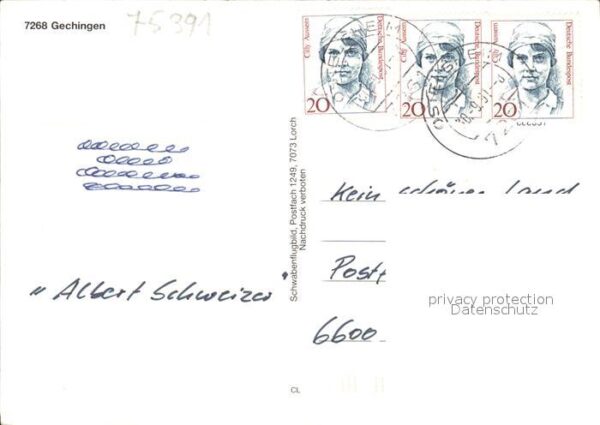 7268 Gechingen
75391
Cilly Aussem
Deutsche Bundespost
20
Cilly Aussem
Deutsche Bundespost
20
Cilly Aussem
Deutsche Bundespost
20
Schwabenflugbild, Postfach 1249, 7073 Lorch
Nachdruck verboten
Kein schöner Land
Post
6600
"Albert Schweizer"
privacy protection
Datenschutz
CL